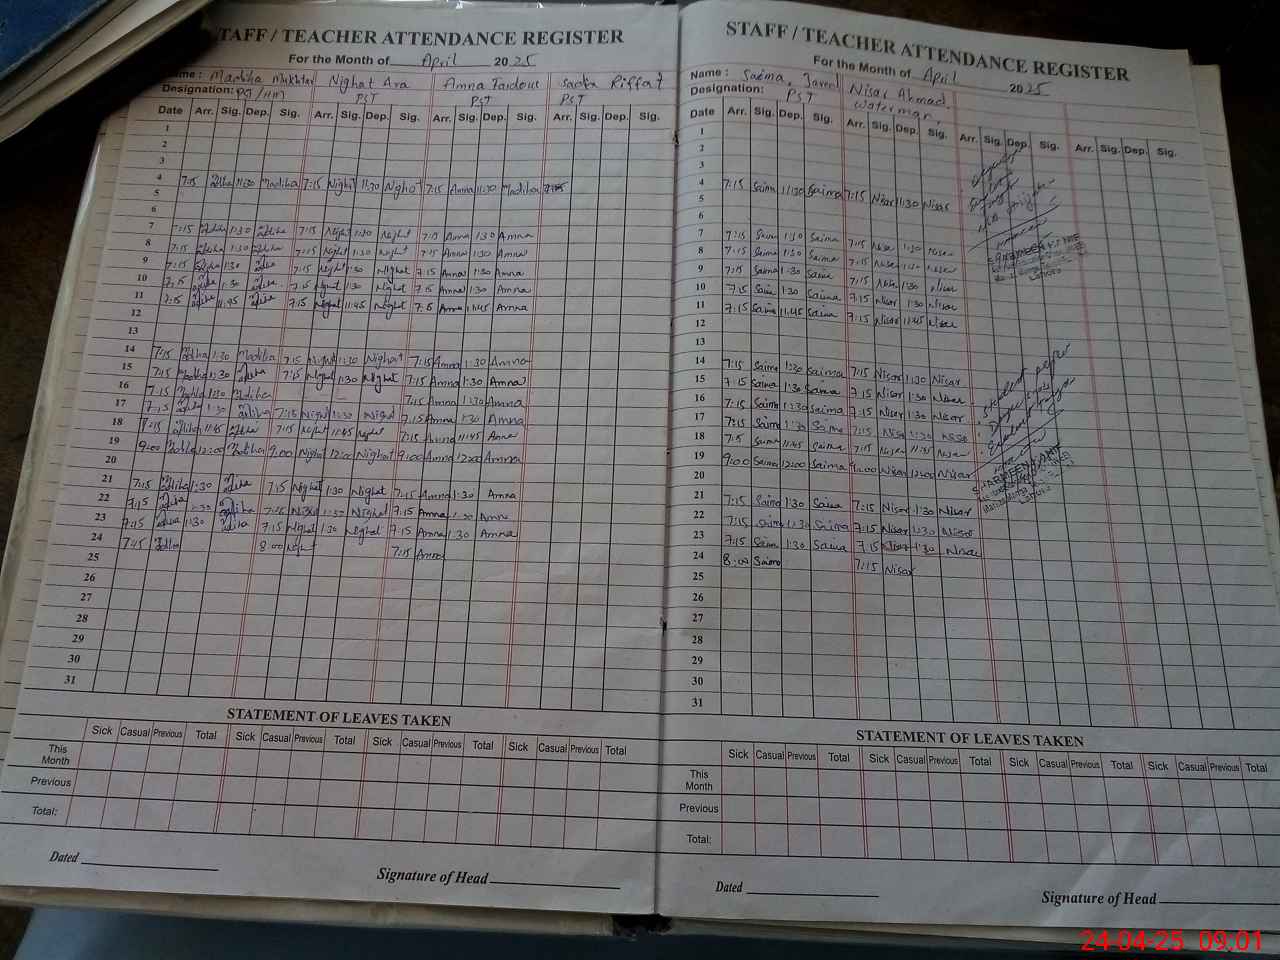 STAFF / TEACHER ATTENDANCE REGISTER
For the Month of April 2025
Name: Madiha Mukhtar Nighat Ara Amna Firdous Riffat
Designation: PST/HM PST PST PST
Date Arr. Sig. Dep. Sig. Arr. Sig. Dep. Sig. Arr. Sig. Dep. Sig. Arr. Sig. Dep. Sig.
1
2
3
4 7:15 11:30 Madiha 7:15 Nighat 11:30 Nighat 7:15 Amna 11:30 Madiha 7:15
5
6
7 7:15 1:30 7:15 Nighat 1:30 Nighat 7:15 Amna 1:30 Amna
8 7:15 1:30 7:15 Nighat 1:30 Nighat 7:15 Amna 1:30 Amna
9 7:15 1:30 7:15 Nighat 1:30 Nighat 7:15 Amna 1:30 Amna
10 7:15 1:30 7:15 Nighat 1:30 Nighat 7:15 Amna 1:30 Amna
11 7:15 11:45 7:15 Nighat 11:45 Nighat 7:15 Amna 11:45 Amna
12
13
14 7:15 1:30 Madiha 7:15 Nighat 1:30 Nighat 7:15 Amna 1:30 Amna
15 7:15 1:30 7:15 Nighat 1:30 Nighat 7:15 Amna 1:30 Amna
16 7:15 1:30 Madiha 7:15 Amna 1:30 Amna
17 7:15 1:30 7:15 Nighat 1:30 Nighat 7:15 Amna 1:30 Amna
18 11:45 7:15 Nighat 11:45 Nighat 7:15 Amna 11:45 Amna
19 9:00 12:00 Madiha 9:00 Nighat 12:00 Nighat 9:00 Amna 12:00 Amna
20
21 7:15 1:30 7:15 Nighat 1:30 Nighat 7:15 Amna 1:30 Amna
22 7:15 1:30 7:15 Nighat 1:30 Nighat 7:15 Amna 1:30 Amna
23 7:15 1:30 7:15 Nighat 1:30 Nighat 7:15 Amna 1:30 Amna
24 7:45 8:00 Nighat 7:15 Amna
25
26
27
28
29
30
31
STATEMENT OF LEAVES TAKEN
Sick Casual Previous Total Sick Casual Previous Total Sick Casual Previous Total Sick Casual Previous Total
This Month
Previous
Total:
Dated
Signature of Head
STAFF / TEACHER ATTENDANCE REGISTER
For the Month of April 2025
Name: Saima Javed Nisar Ahmad
Designation: PST Waterman
Date Arr. Sig. Dep. Sig. Arr. Sig. Dep. Sig. Arr. Sig. Dep. Sig. Arr. Sig. Dep. Sig.
1
2
3
4 7:15 Saima 11:30 Saima 7:15 Nisar 11:30 Nisar
5
6
7 7:15 Saima 1:30 Saima 7:15 Nisar 1:30 Nisar
8 7:15 Saima 1:30 Saima 7:15 Nisar 1:30 Nisar
9 7:15 Saima 1:30 Saima 7:15 Nisar 1:30 Nisar
10 7:15 Saima 1:30 Saima 7:15 Nisar 1:30 Nisar
11 7:15 Saima 11:45 Saima 7:15 Nisar 11:45 Nisar
12
13
14 7:15 Saima 1:30 Saima 7:15 Nisar 1:30 Nisar
15 7:15 Saima 1:30 Saima 7:15 Nisar 1:30 Nisar
16 7:15 Saima 1:30 Saima 7:15 Nisar 1:30 Nisar
17 7:15 Saima 1:30 Saima 7:15 Nisar 1:30 Nisar
18 7:15 Saima 11:45 Saima 7:15 Nisar 11:45 Nisar
19 9:00 Saima 12:00 Saima 9:00 Nisar 12:00 Nisar
20
21 7:15 Saima 1:30 Saima 7:15 Nisar 1:30 Nisar
22 7:15 Saima 1:30 Saima 7:15 Nisar 1:30 Nisar
23 7:15 Saima 1:30 Saima 7:15 Nisar 1:30 Nisar
24 8:00 Saima 7:15 Nisar
25
26
27
28
29
30
31
STATEMENT OF LEAVES TAKEN
Sick Casual Previous Total Sick Casual Previous Total Sick Casual Previous Total Sick Casual Previous Total
This Month
Previous
Total:
Dated
Signature of Head
24-04-25 09:01